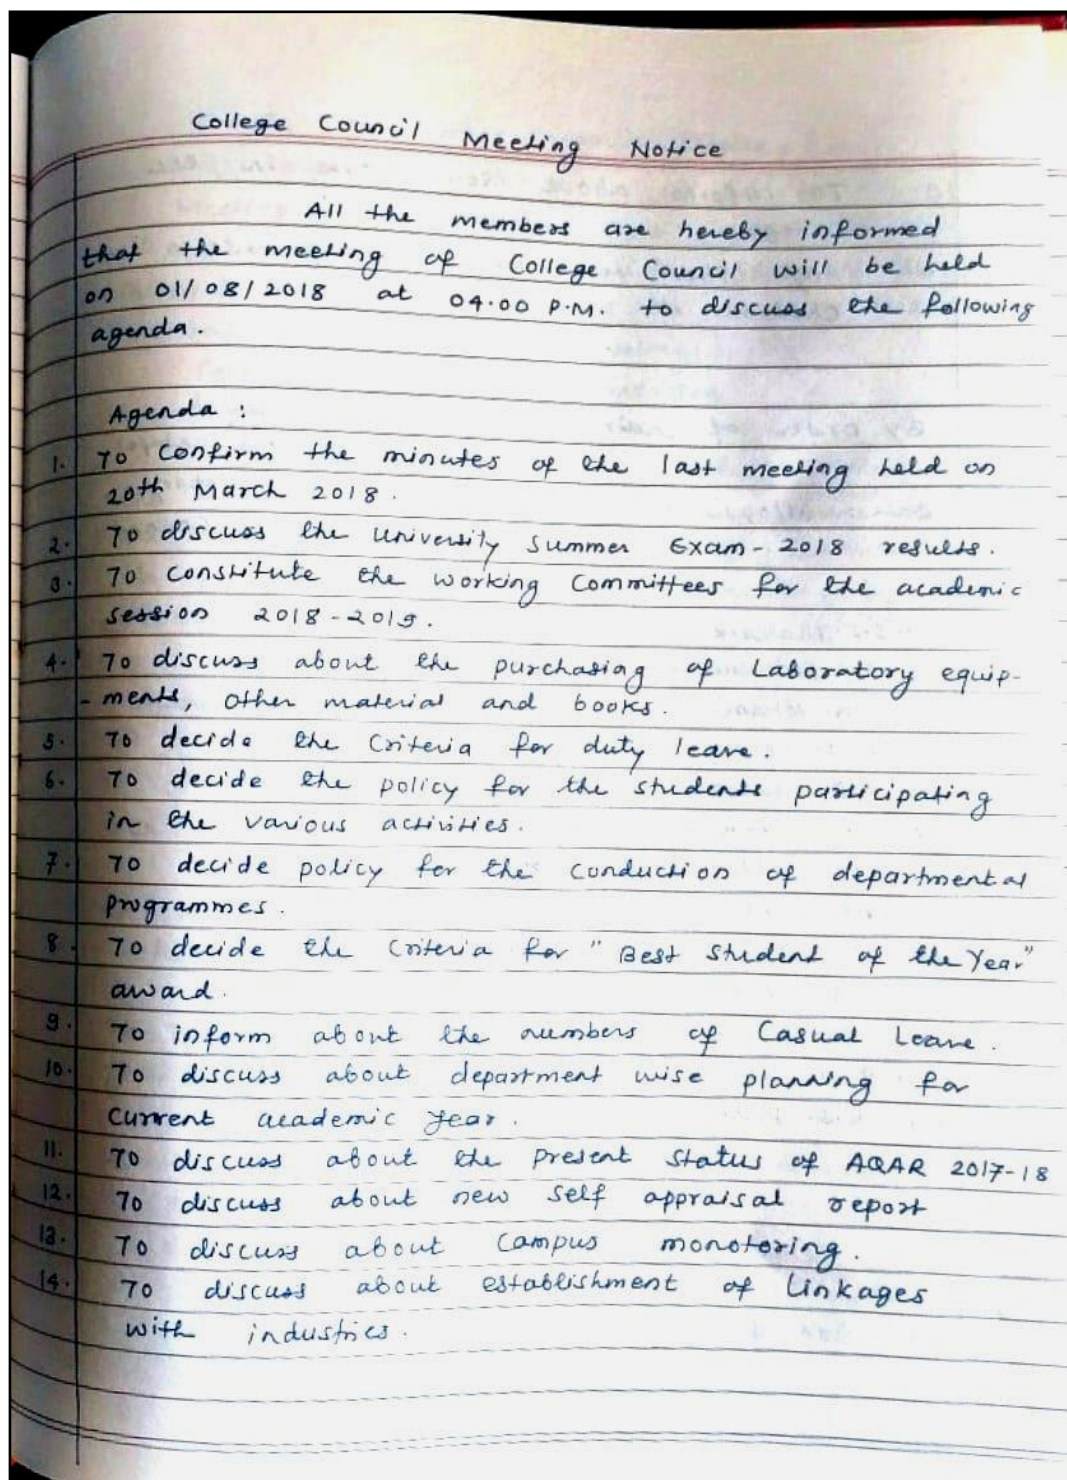 College Council Meeting Notice
All the members are hereby informed
that the meeting of College Council will be held
on 01/08/2018 at 04.00 P.M. to discuss the following
agenda.
Agenda :
1. To Confirm the minutes of the last meeting held on
20th March 2018.
2. To discuss the University Summer Exam-2018 results.
3. To constitute the working Committees for the academic
session 2018-2019.
4. To discuss about the purchasing of Laboratory equip-
-ments, other material and books.
5. To decide the Criteria for duty leave.
6. To decide the policy for the students participating
in the various activities.
7. To decide policy for the conduction of departmental
programmes.
8. To decide the Criteria for "Best Student of the Year"
award.
9. To inform about the numbers of Casual Leave.
10. To discuss about department wise planning for
Current academic year.
11. To discuss about the Present Status of AQAR 2017-18
12. To discuss about new self appraisal report
13. To discuss about Campus monotoring.
14. To discuss about establishment of Linkages
with industries.